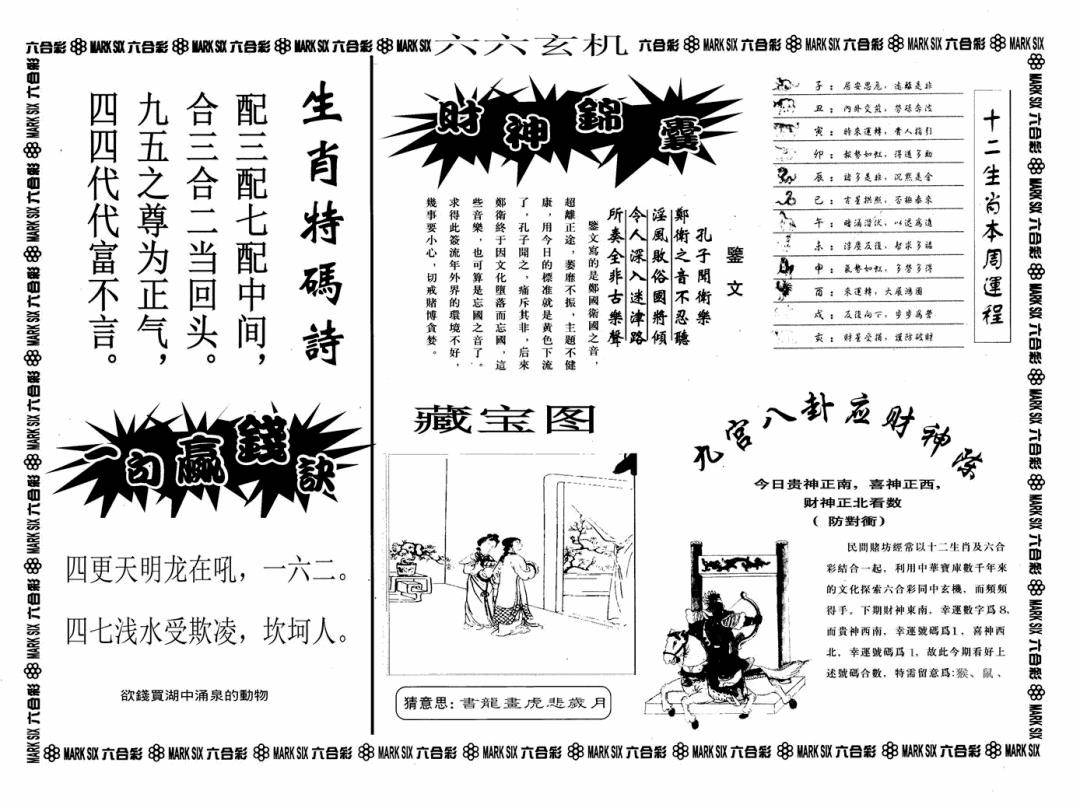 六合彩 MARK SIX 六合彩 MARK SIX 六合彩 MARK SIX 六合彩 MARK SIX 六六玄机 六合彩 MARK SIX 六合彩 MARK SIX 六合彩 MARK SIX 六合彩 MARK SIX
生肖特碼詩
配三配七配中间，
合三合二当回头。
九五之尊为正气，
四四代代富不言。
一句贏錢訣
四更天明龙在吼，一六二。
四七浅水受欺凌，坎坷人。
欲錢買湖中涌泉的動物
財神錦囊
鑒文
孔子聞衛樂
鄭衛之音不忍聽
淫風敗俗國將傾
令人深入迷津路
所奏全非古樂聲
鑒文寫的是鄭國衛國之音，
超離正途，萎靡不振，主題不健
康，用今日的標准就是黄色下流
了，孔子聞之，痛斥其非，后來
鄭衛終于因文化墮落而忘國，這
些音樂，也可算是忘國之音了。
求得此簽流年外界的環境不好，
幾事要小心，切戒賭博貪婪。
十二生肖本周運程
子：居安思危，遠離是非
丑：內外交煎，勞碌奔波
寅：時來運轉，貴人指引
卯：
辰：諸多是非，沉默是金
巳：
午：
未：
申：氣勢如虹，多勞多得
酉：來運轉，大展鴻圖
戌：
亥：財星受損，謹防破財
藏宝图
猜意思：書龍畫虎悲歲月
九宫八卦应财神祭
今日贵神正南，喜神正西，
财神正北看数
（防對衝）
民間賭坊經常以十二生肖及六合
彩結合一起，利用中華寶庫數千年來
的文化探索六合彩同中玄機，而頻頻
得手。下期財神東南，幸運數字爲8，
而貴神西南，幸運號碼爲1，喜神西
北，幸運號碼爲1，故此今期看好上
述號碼合數，特需留意爲：猴、鼠、
六合彩 MARK SIX 六合彩 MARK SIX 六合彩 MARK SIX 六合彩 MARK SIX 六合彩 MARK SIX 六合彩 MARK SIX 六合彩 MARK SIX 六合彩 MARK SIX 六合彩 MARK SIX